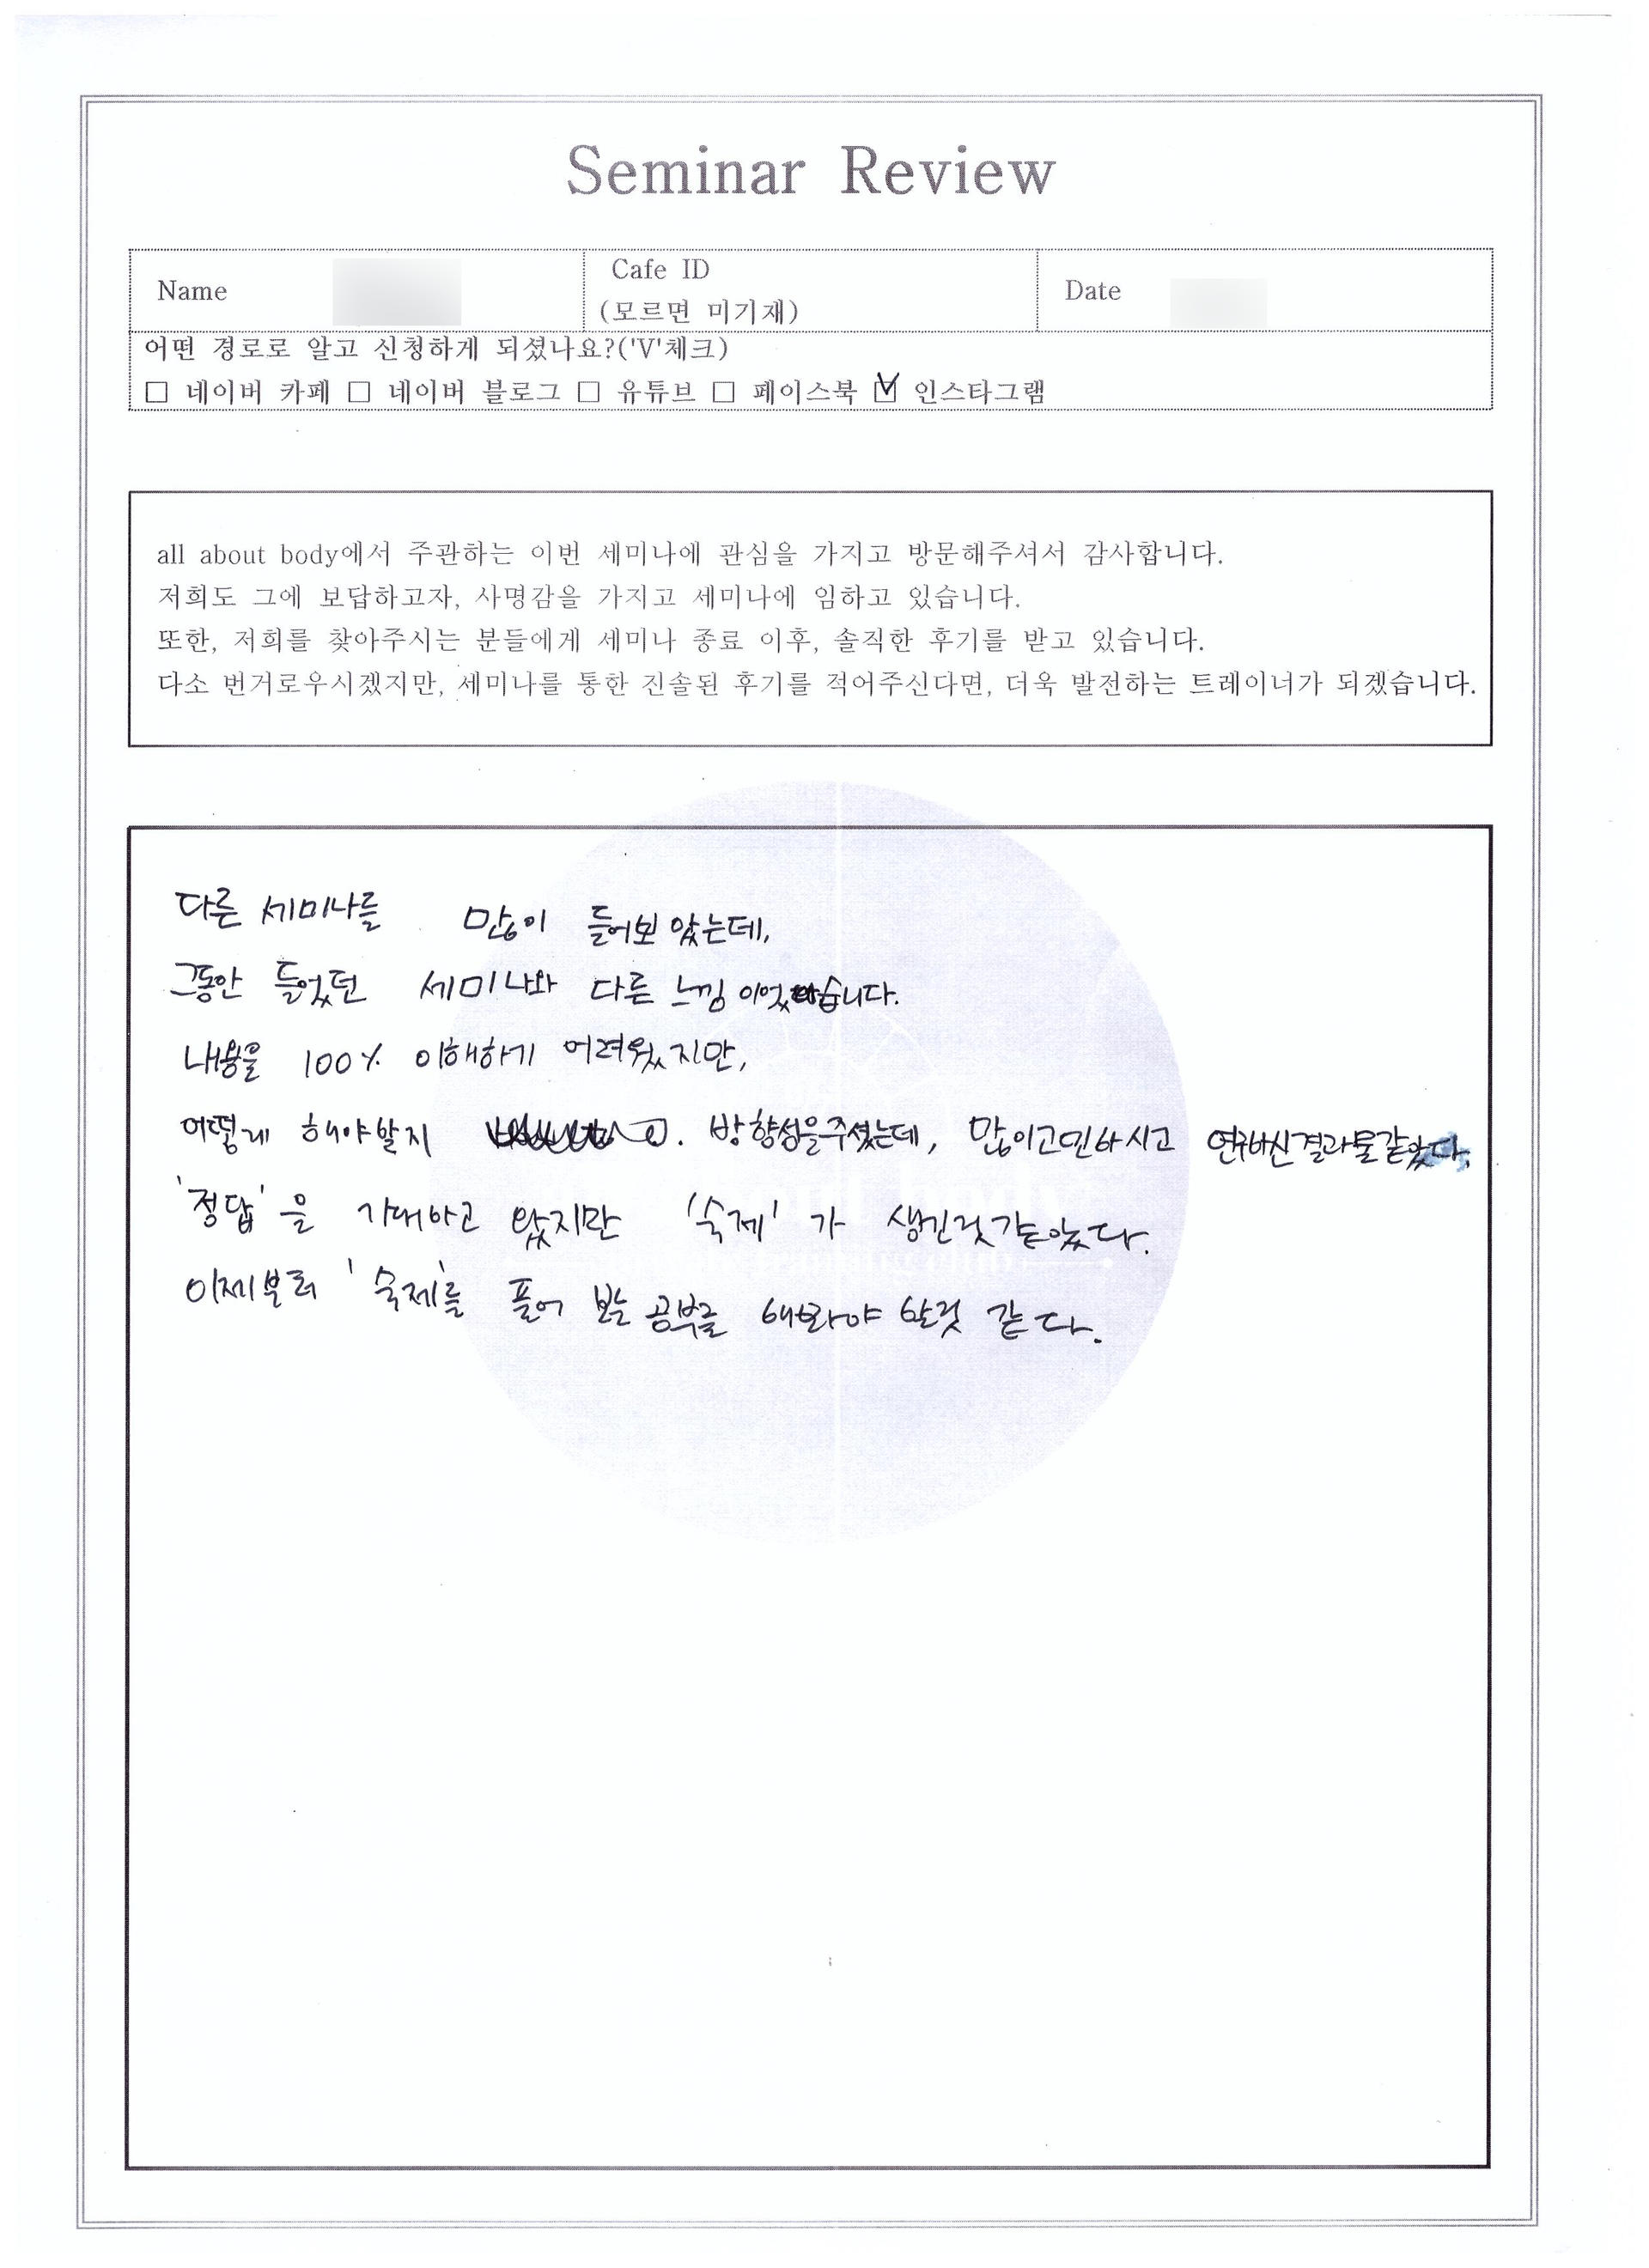 Seminar Review
Name
Cafe ID
(모르면 미기재)
Date
어떤 경로로 알고 신청하게 되셨나요?('V'체크)
□ 네이버 카페 □ 네이버 블로그 □ 유튜브 □ 페이스북 ☑ 인스타그램
all about body에서 주관하는 이번 세미나에 관심을 가지고 방문해주셔서 감사합니다.
저희도 그에 보답하고자, 사명감을 가지고 세미나에 임하고 있습니다.
또한, 저희를 찾아주시는 분들에게 세미나 종료 이후, 솔직한 후기를 받고 있습니다.
다소 번거로우시겠지만, 세미나를 통한 진솔된 후기를 적어주신다면, 더욱 발전하는 트레이너가 되겠습니다.
다른 세미나를 많이 들어보았는데,
그동안 들었던 세미나와 다른 느낌이었습니다.
내용을 100% 이해하기 어려웠지만,
어떻게 해야할지 방향성을주셨는데, 많이고민하시고 연구하신결과물같았다.
'정답'을 기대하고 왔지만 '숙제'가 생긴것같았다.
이제부터 '숙제'를 풀어 보는 공부를 해봐야 할것 같다.